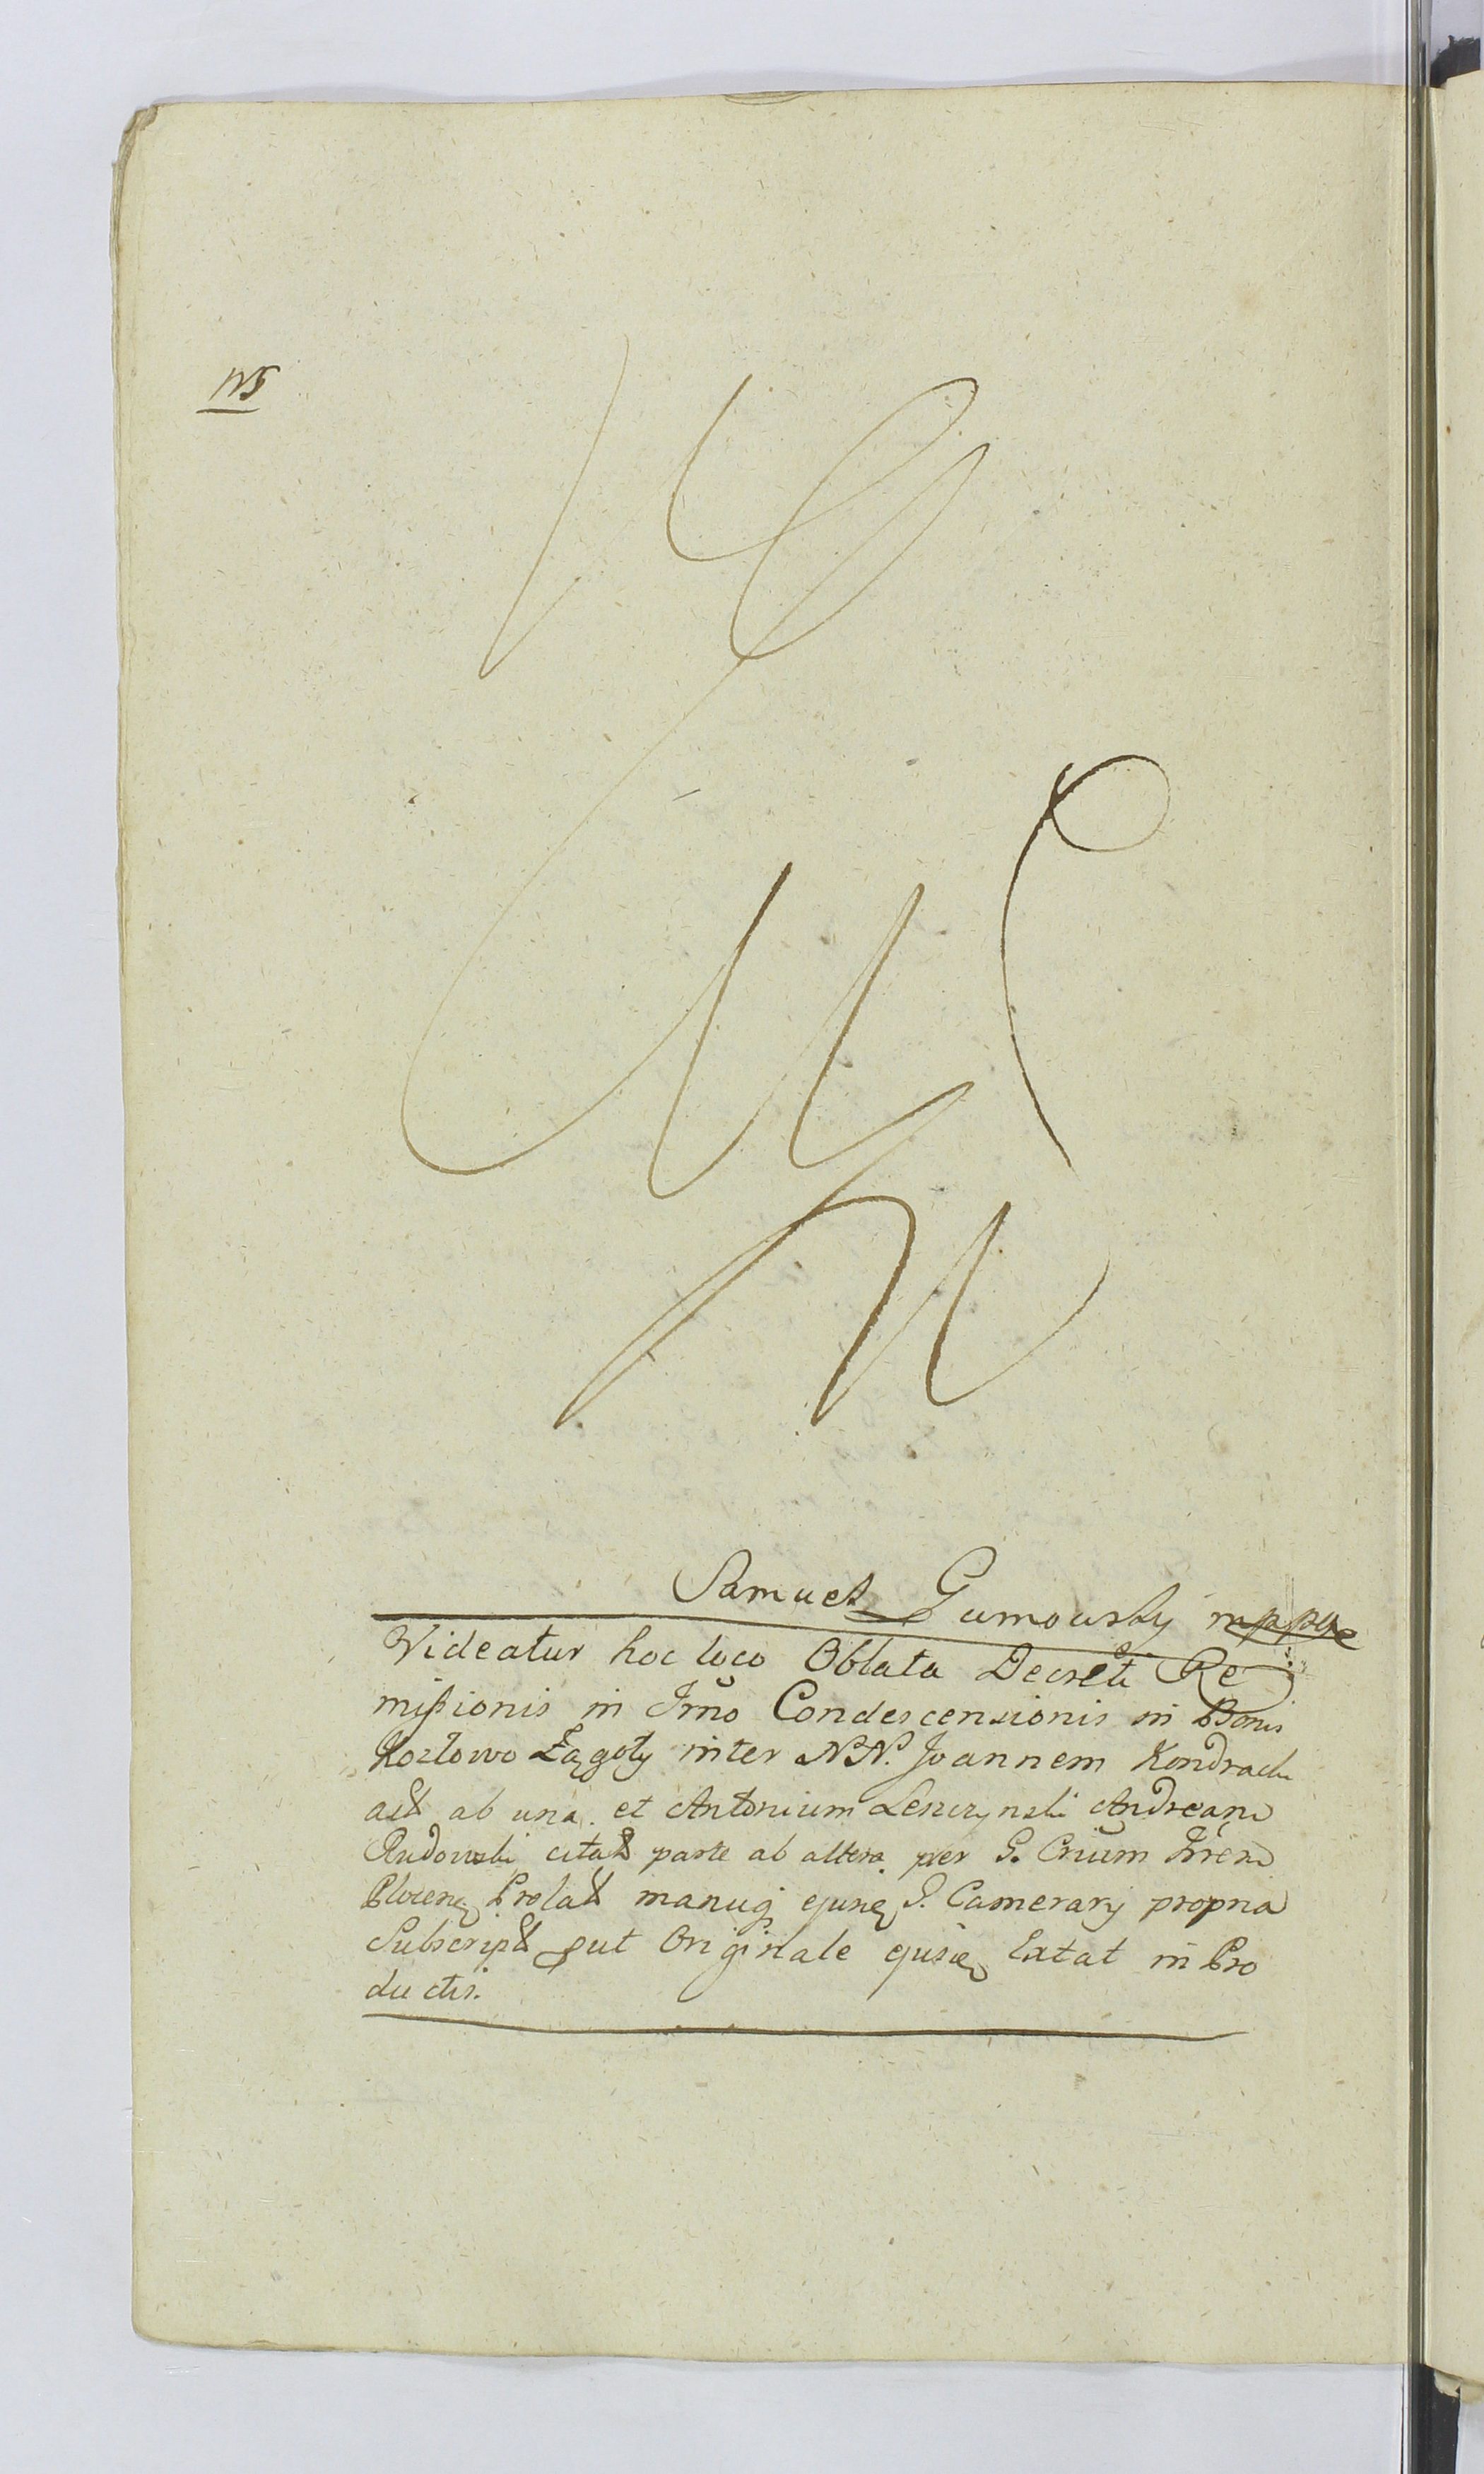 NB
Samuel Gumowsky mppa
Videatur hoc loco Oblata Decreti Re
mißionis in Trño Condescensionis in Bonis
Kozłowo Łągoty inter NN. Joannem Kondrack
ab una et Antonium Leszczynski Andream
Rudowski citat parte ab altera per G. Crũum
Prolat manuq ejusq G. Camerarij propria
Subscript put Originale ejusq Extat in Pro
ductis.